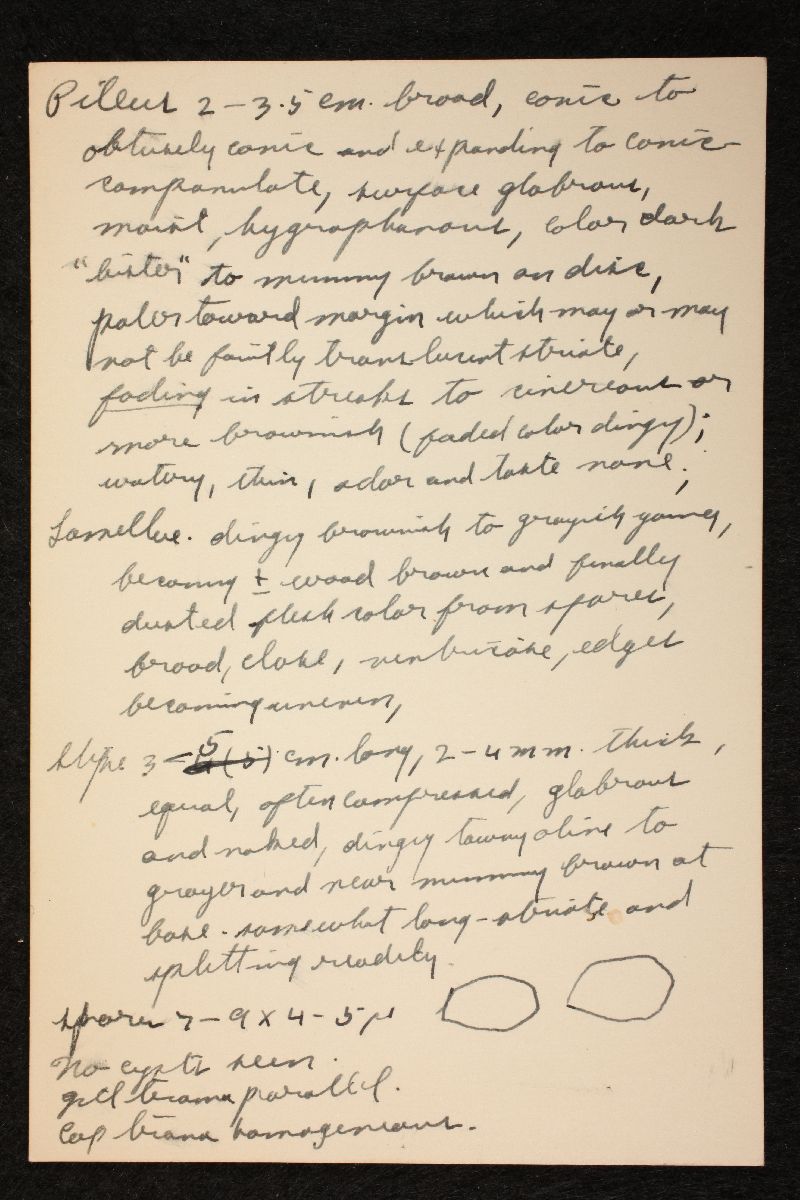 Pileus 2 – 3.5 cm. broad, conic to
obtusely conic and expanding to conic-
companulate, surface glabrous,
moist, hygrophanous, color dark
"bister" to mummy brown on disc,
paler toward margin which may or may
not be faintly translucent striate,
fading in streaks to cinereous or
more brownish (faded color dingy);
watery, thin, odor and taste none;
Lamellae. dingy brownish to grayish young,
becoming ± wood brown and finally
dusted flesh color from spores,
broad, close, ventricose, edges
becoming uneven,
Stipe 3 – 5 cm. long, 2 – 4 mm. thick,
equal, often compressed, glabrous
and naked, dingy tawny olive to
grayer and near mummy brown at
base. somewhat long-striate and
splitting readily.
spores 7 – 9 x 4 – 5 µ
No cysts seen.
gill trama parallel.
Cap trama homogeneous.